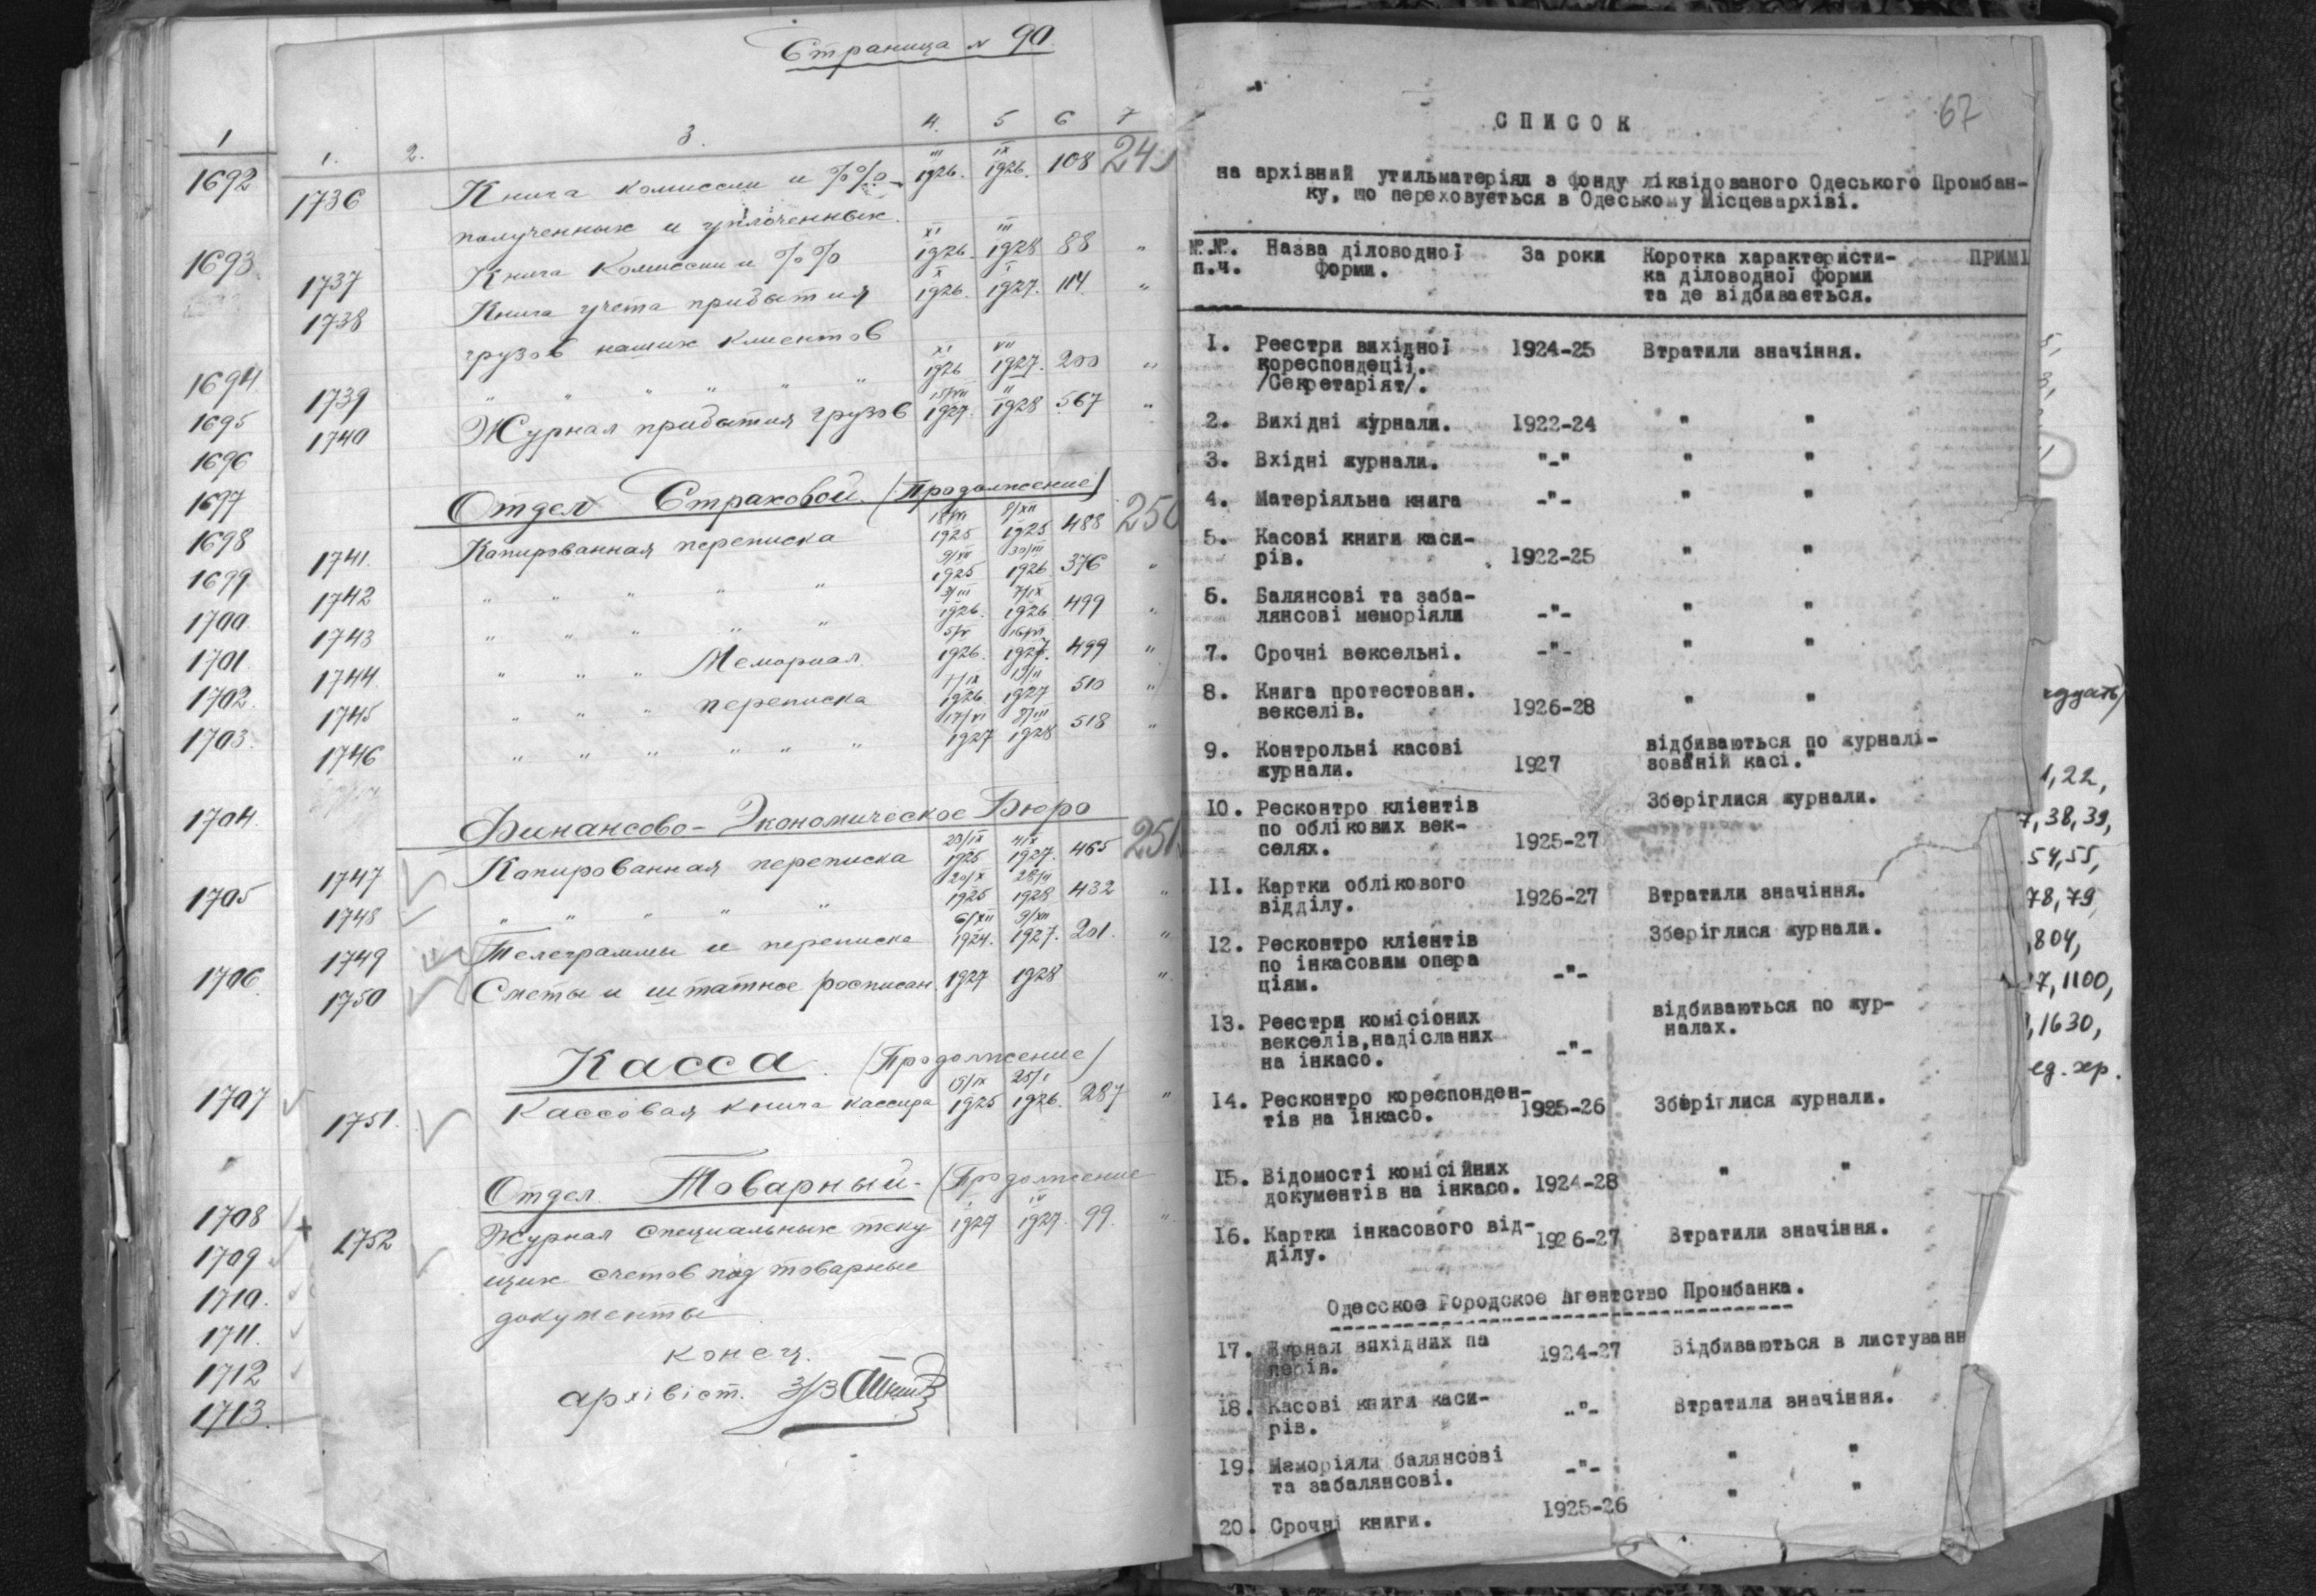 Страница № 90.
1
1692
1693
1694
1695
1696
1697
1698
1699
1700
1701
1702
1703
1704
1705
1706
1707
1708
1709
1710
1711
1712
1713
1. 2. 3. 4. 5 6 7
1736 Книга комиссии и %% III 1926. IX 1926. 108
полученных и уплоченных.
1737 Книга Комиссии и %% XI 1926. III 1928 88 "
1738 Книга учета прибытия X 1926. I 1927. 114 "
грузов наших клиентов
1739 " " " " " XI 1926 VII 1927. 200 "
1740 Журнал прибытия грузов 15/VII 1927. II 1928 567 "
Отдел Страховой (Продолжение)
1741. Копированная переписка 1925 8/XII 1925 488 250
1742 " " " " " 9/XII 1925 30/III 1926 376 "
1743 " " " " " 3/III 1926. 7/IX 1926 499 "
1744 " " " Мемориал 1926. 1927. 499 "
1745 " " " переписка 1926 1927 510 "
1746 " " " " " " 1927 8/III 1928 518 "
Финансово-Экономическое Бюро
1747 Копированная переписка 1925 1927. 465 251
1748 " " " " " 1925 1928 432 "
1749 Телеграммы и переписка 6/XII 1924. 9/XII 1927. 201. "
1750 Сметы и штатное росписан. 1927 1928 "
Касса. (Продолжение)
1751. Кассовая книга кассира 15/IX 1925 25/I 1926. 287 "
Отдел. Товарный- (Продолжение
1752 Журнал специальных теку I 1927 IV 1927. 99. "
щих счетов под товарные
документы
конец.
архівіст.
67
СПИСОК
на архівний утильматеріял з фонду ліквідованого Одеського Промбан-
ку, що переховується в Одеському Місцевархіві.
№.№. п.ч. Назва діловодної форми. За роки Коротка характеристи- ка діловодної форми та де відбивається. ПРИМІ
1. Реєстри вихідної 1924-25 Втратили значіння.
кореспондеції.
/Секретаріят/.
2. Вихідні журнали. 1922-24 " "
3. Вхідні журнали. "-" " "
4. Матеріяльна книга -"- " "
5. Касові книги каси-
рів. 1922-25 " "
6. Балянсові та заба-
лянсові меморіяли -"- " "
7. Срочні вексельні. -"- " "
8. Книга протестован.
векселів. 1926-28 " "
9. Контрольні касові відбиваються по журналі-
журнали. 1927 зованій касі."
10. Ресконтро клієнтів Зберіглися журнали.
по облікових век-
селях. 1925-27
11. Картки облікового
відділу. 1926-27 Втратили значіння.
12. Ресконтро клієнтів Зберіглися журнали.
по інкасовим опера
ціям. -"-
13. Реєстри комісіоних відбиваються по жур-
векселів,надісланих налах.
на інкасо. -"-
14. Ресконтро кореспонден- 1925-26 Зберіглися журнали.
тів на інкасо.
15. Відомості комісійних " "
документів на інкасо. 1924-28
16. Картки інкасового від- 1926-27 Втратили значіння.
ділу.
Одесское Городское Агентство Промбанка.
17. Журнал вихідних па 1924-27 Відбиваються в листуванн
перів.
18. Касові книги каси- -"- Втратили значіння.
рів.
19. Меморіяли балянсові -"- " "
та забалянсові.
20. Срочні книги. 1925-26 " "
1,22,
7,38,39,
54,55,
78,79,
,804,
7,1100,
,1630,
ед. хр.